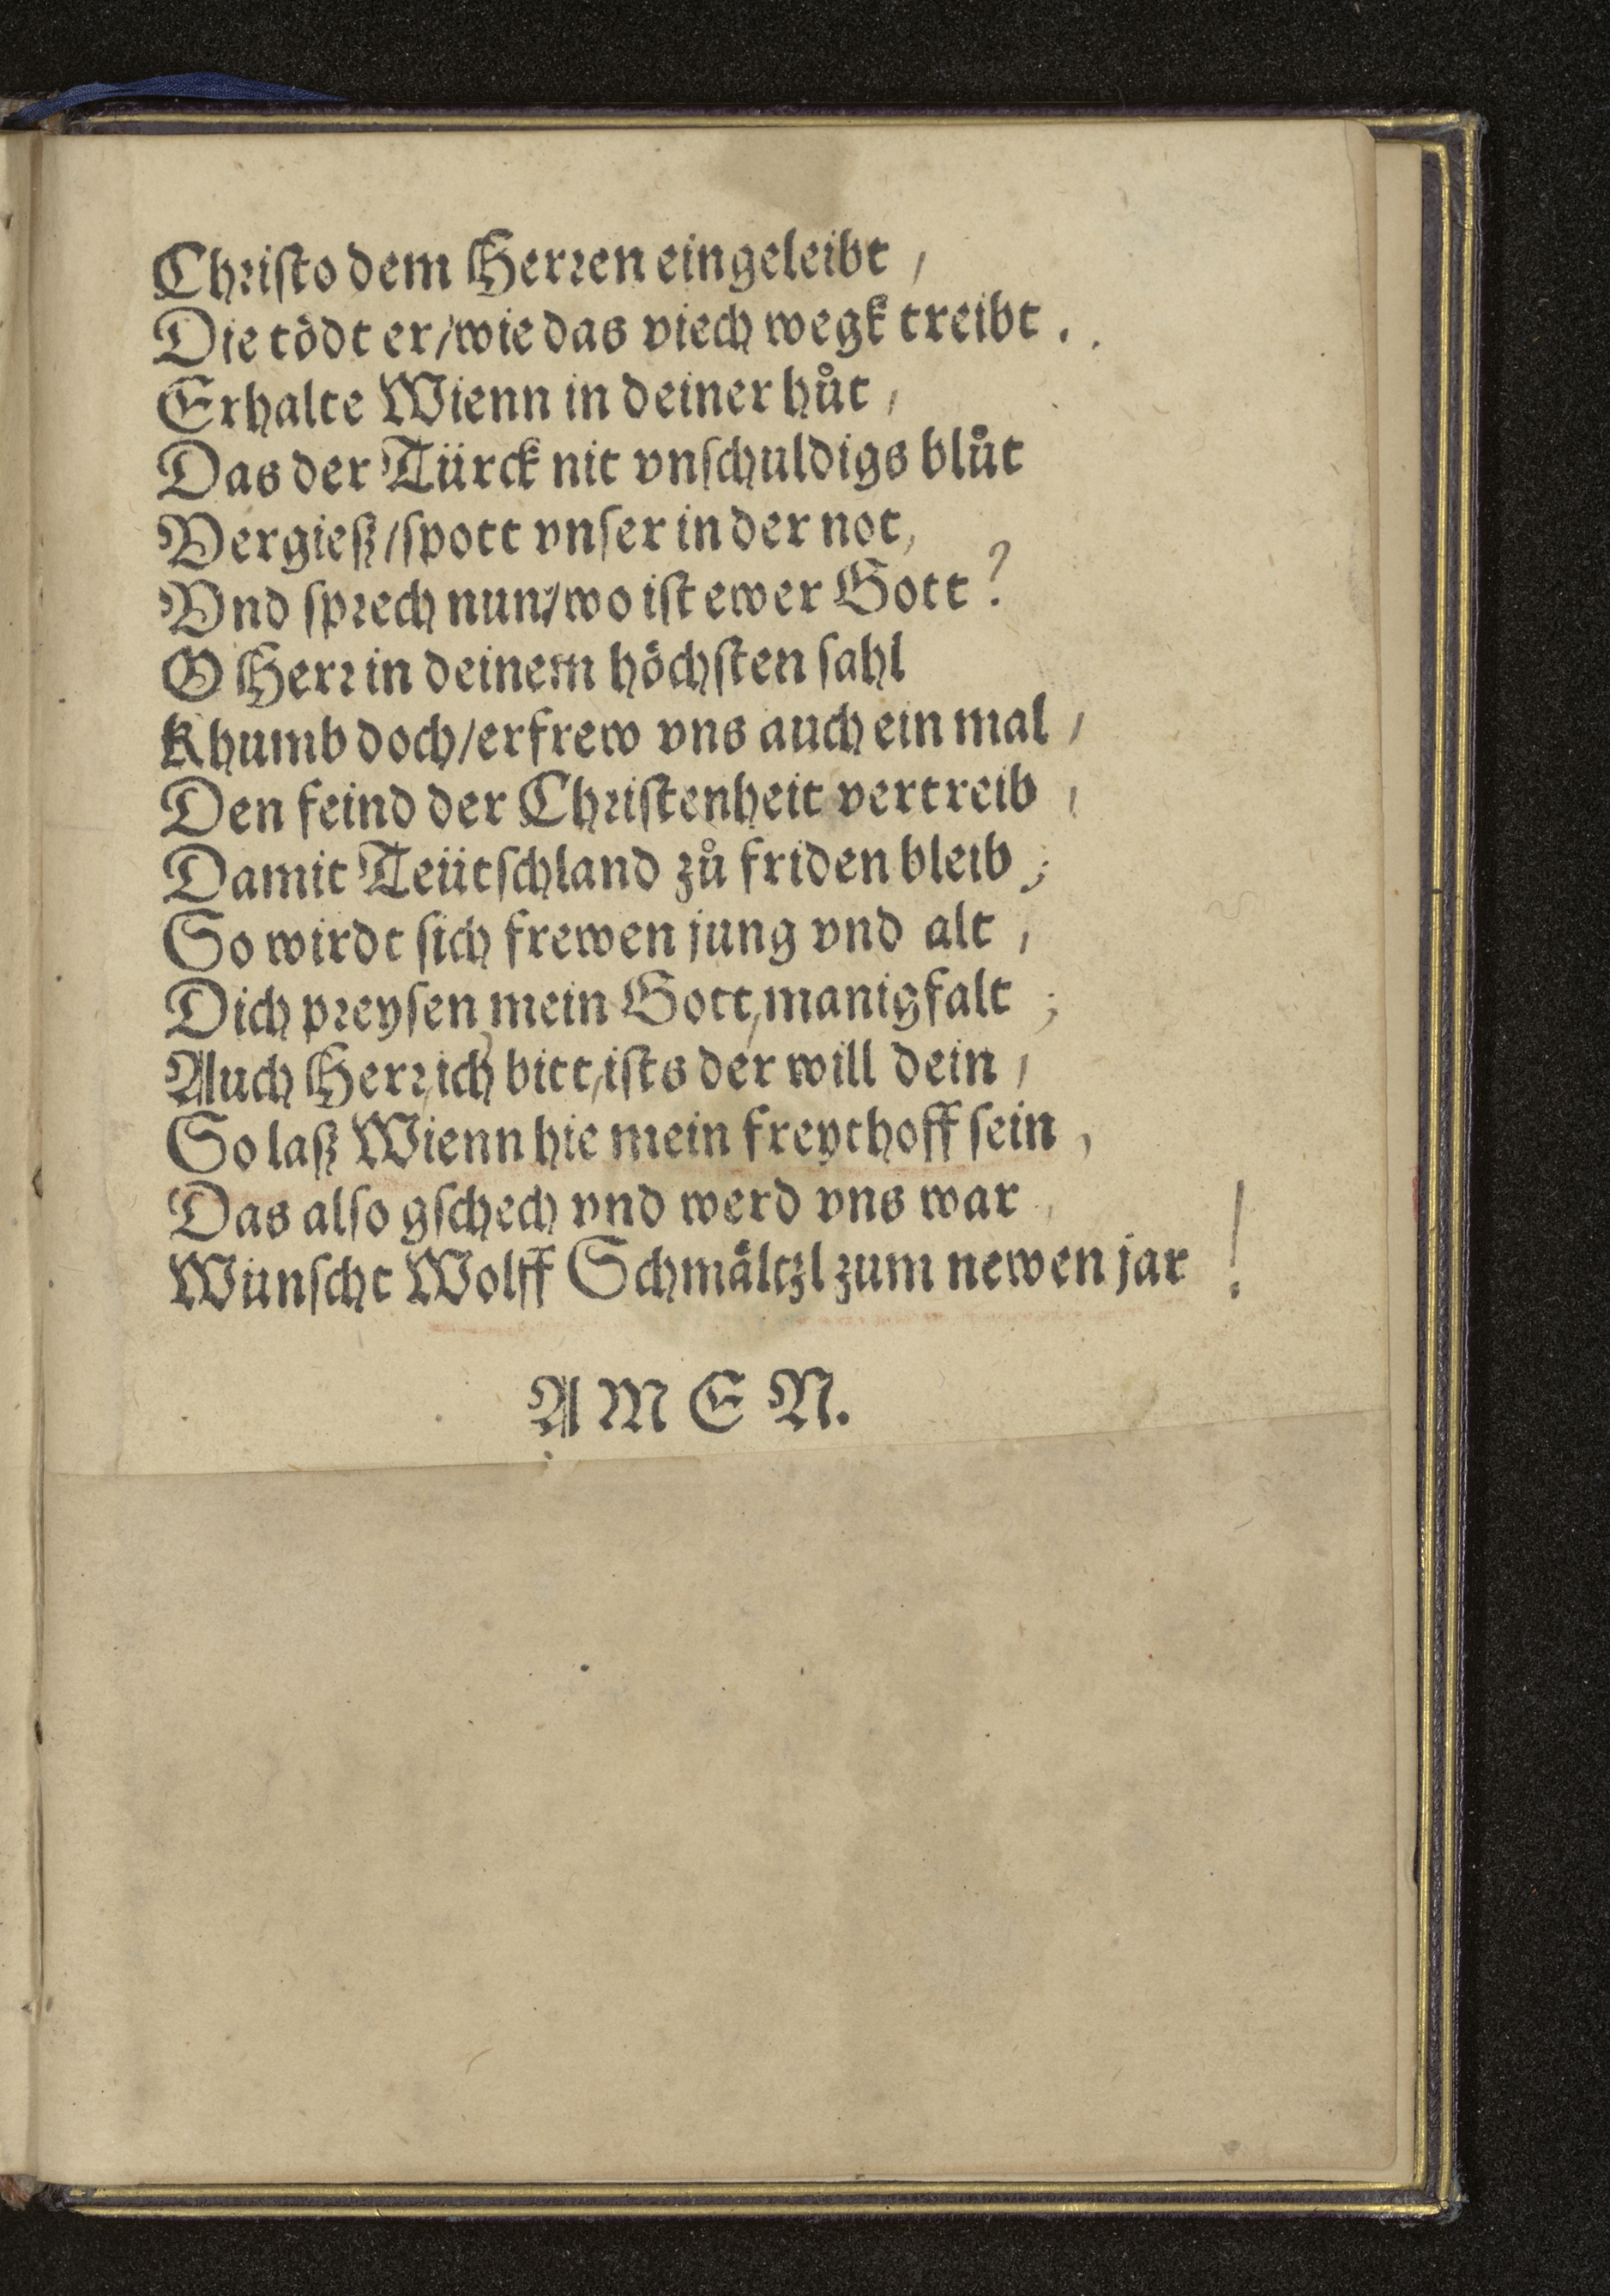 Chriſto dem Herren eingeleibt,
Die tödt er/wie das viech wegk treibt..
Erhalte Wienn in deiner hůt,
Das der Türck nit vnſchuldigs blůt
Vergieß/ſpott vnſer in der not,
Vnd ſprech nun/wo iſt ewer Gott?
O Herr in deinem höchſten ſahl
Khumb doch/erfrew vns auch ein mal,
Den feind der Chriſtenheit vertreib,
Damit Teütſchland zů friden bleib;
So wirdt ſich frewen jung vnd alt,
Dich preyſen, mein Gott, manigfalt;
Auch Herr, ich bitt, iſts der will dein,
So laß Wienn hie mein freythoff ſein,
Das alſo gſchech vnd werd vns war,
Wünſcht Wolff Schmältzl zum newen jar!
AMEN.